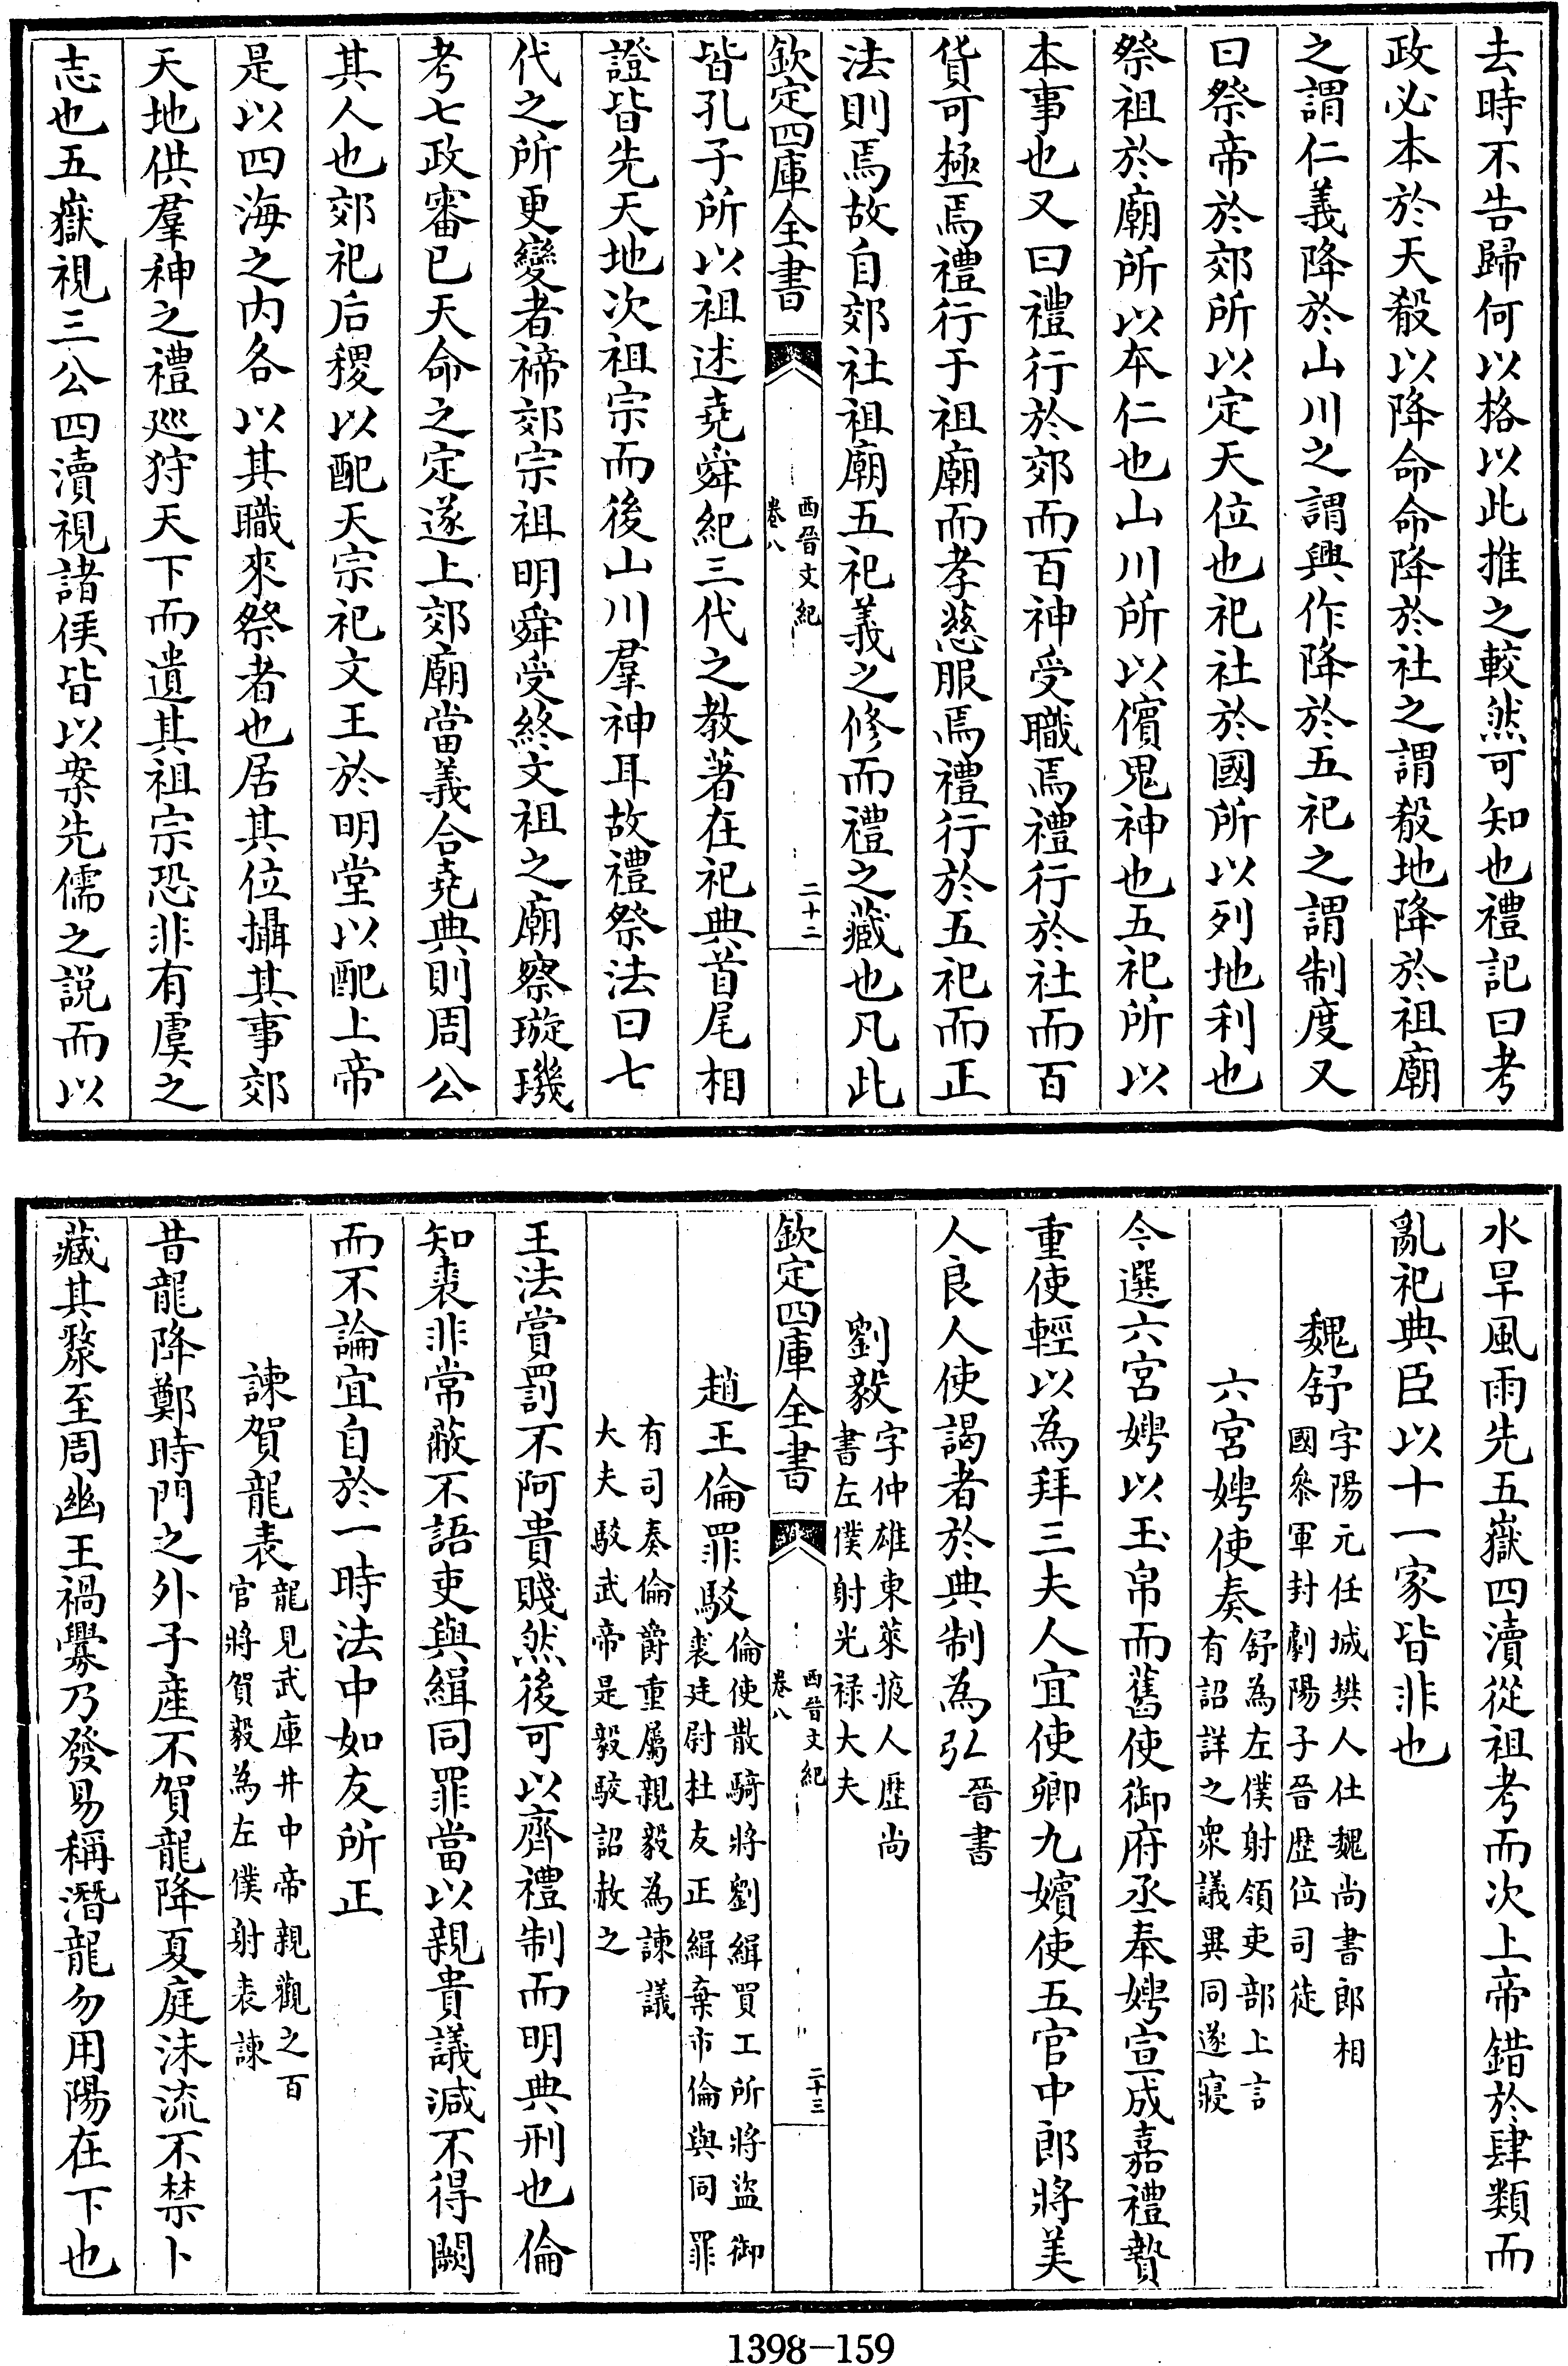 去時不告歸何以格以此推之較然可知也禮記曰考
政必本於天殽以降命命降於社之謂殽地降於祖廟
之謂仁義降於山川之謂興作降於五祀之謂制度又
曰祭帝於郊所以定天位也祀社於國所以列地利也
祭祖於廟所以本仁也山川所以儐鬼神也五祀所以
本事也又曰禮行於郊而百神受職焉禮行於社而百
貨可極焉禮行于祖廟而孝慈服焉禮行於五祀而正
法則焉故自郊社祖廟五祀義之修而禮之藏也凡此
欽定四庫全書
西晉文紀
卷八
二十二
皆孔子所以祖述堯舜紀三代之教著在祀典首尾相
證皆先天地次祖宗而後山川羣神耳故禮祭法曰七
代之所更變者禘郊宗祖明舜受終文祖之廟察璇璣
考七政審已天命之定遂上郊廟當義合堯典則周公
其人也郊祀后稷以配天宗祀文王於明堂以配上帝
是以四海之内各以其職來祭者也居其位攝其事郊
天地供羣神之禮廵狩天下而遺其祖宗恐非有虞之
志也五嶽視三公四瀆視諸侯皆以案先儒之説而以
水旱風雨先五嶽四瀆從祖考而次上帝錯於肆類而
亂祀典臣以十一家皆非也
魏舒
字陽元任城樊人仕魏尚書郎相
國叅軍封劇陽子晉歴位司徒
六宮娉使奏
舒為左僕射領吏部上言
有詔詳之衆議異同遂寢
今選六宮娉以玉帛而舊使御府丞奉娉宣成嘉禮贄
重使輕以為拜三夫人宜使卿九嬪使五官中郎將美
人良人使謁者於典制為弘
晉書
劉毅
字仲雄東萊掖人歴尚
書左僕射光禄大夫
欽定四庫全書
西晉文紀
卷八
二十三
趙王倫罪駁
倫使散騎將劉緝買工所將盜御
裘廷尉杜友正緝棄市倫與同罪
有司奏倫爵重屬親毅為諫議
大夫駮武帝是毅駮詔赦之
王法賞罰不阿貴賤然後可以齊禮制而明典刑也倫
知裘非常蔽不語吏與緝同罪當以親貴議減不得闕
而不論宜自於一時法中如友所正
諫賀龍表
龍見武庫井中帝親觀之百
官將賀毅為左僕射表諫
昔龍降鄭時門之外子產不賀龍降夏庭沬流不禁卜
藏其漦至周幽王禍釁乃發易稱潛龍勿用陽在下也
1398-159